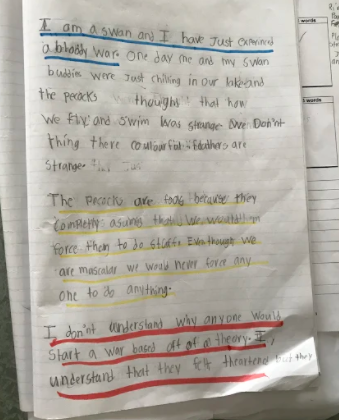 I am a swan and I have Just experinced
a bloddy war. One day me and my swan
buddies were Just chilling in our lake and
the pecocks thought that how
we fly and swim was strange. We Don't
thing there coulourful feathers are
strange.
The pecocks are fools because they
completly asumed that we would
force them to do stuff. Even though we
are mascular we would never force any
one to do anything.
I don't understand why anyone would
Start a war based off of a theory. I
understand that they felt but they
words
words